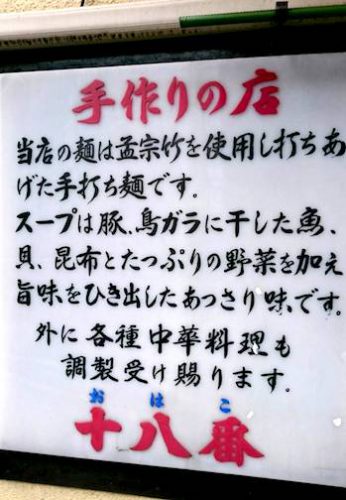 手作りの店
当店の麺は孟宗竹を使用し打ちあ
げた手打ち麺です.
スープは豚、鳥ガラに干した魚、
貝、昆布とたっぷりの野菜を加え
旨味をひき出したあっさり味です。
外に各種中華料理も
調製受け賜ります.
おはこ
十八番